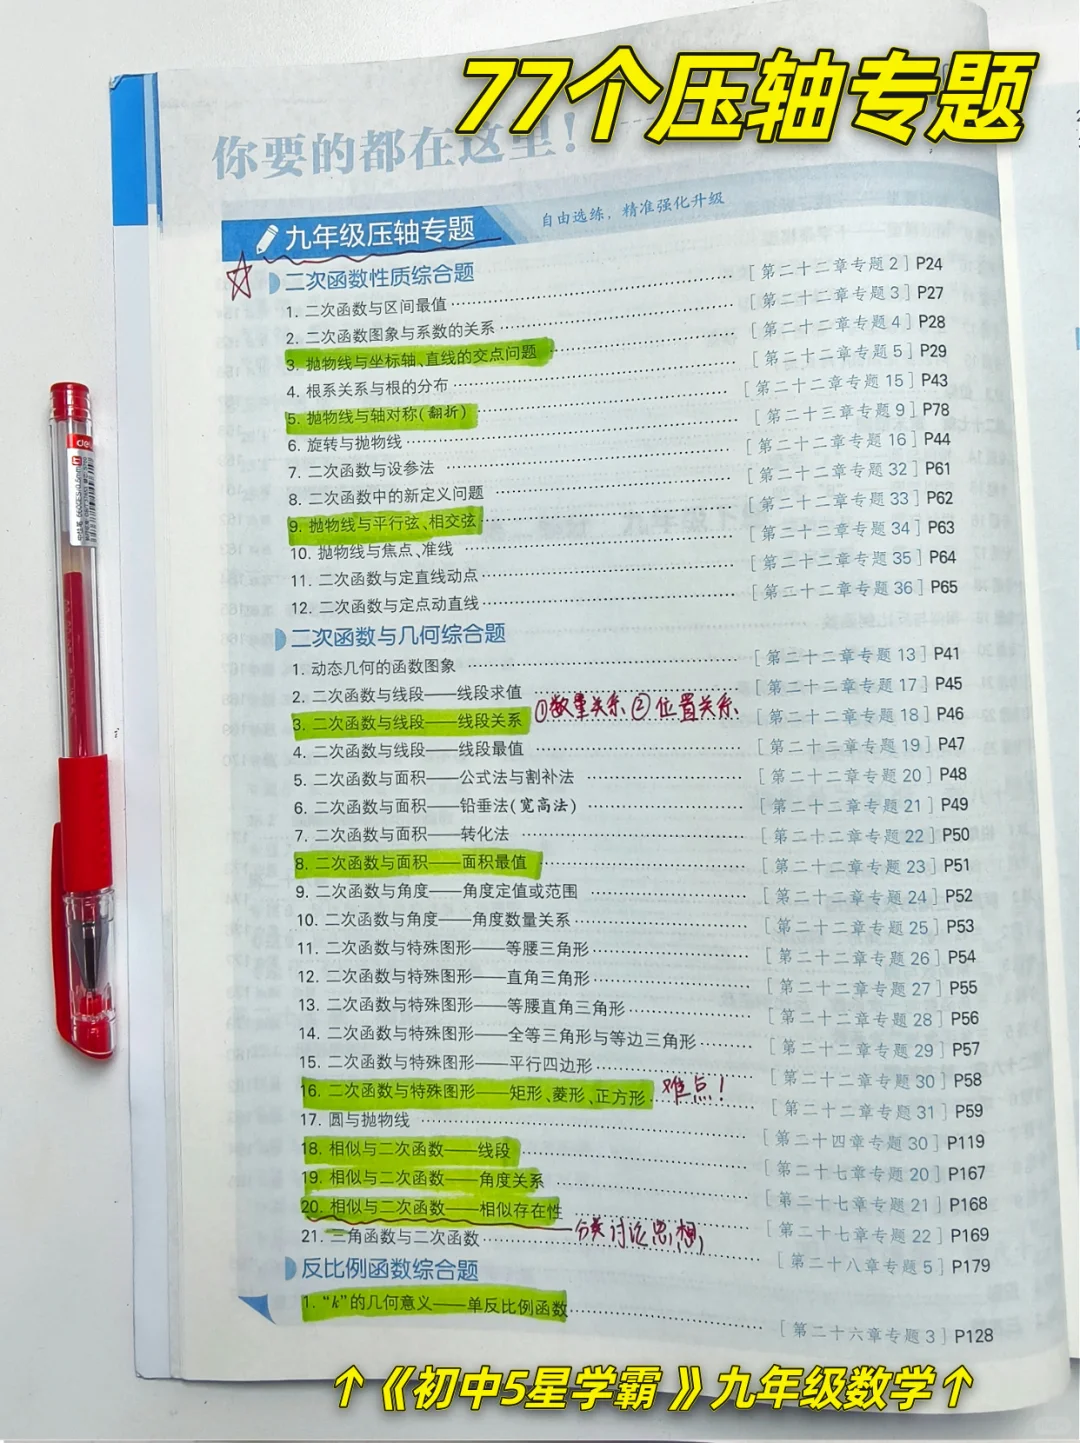 77个压轴专题
你要的都在这里!
九年级压轴专题 自由选练，精准强化升级
二次函数性质综合题
1. 二次函数与区间最值 [第二十二章专题2] P24
2. 二次函数图象与系数的关系 [第二十二章专题3] P27
3. 抛物线与坐标轴、直线的交点问题 [第二十二章专题4] P28
4. 根系关系与根的分布 [第二十二章专题5] P29
5. 抛物线与轴对称(翻折) [第二十二章专题15] P43
6. 旋转与抛物线 [第二十三章专题9] P78
7. 二次函数与设参法 [第二十二章专题16] P44
8. 二次函数中的新定义问题 [第二十二章专题32] P61
9. 抛物线与平行弦、相交弦 [第二十二章专题33] P62
10. 抛物线与焦点、准线 [第二十二章专题34] P63
11. 二次函数与定直线动点 [第二十二章专题35] P64
12. 二次函数与定点动直线 [第二十二章专题36] P65
二次函数与几何综合题
1. 动态几何的函数图象 [第二十二章专题13] P41
2. 二次函数与线段——线段求值 [第二十二章专题17] P45
3. 二次函数与线段——线段关系 ①数量关系 ②位置关系 [第二十二章专题18] P46
4. 二次函数与线段——线段最值 [第二十二章专题19] P47
5. 二次函数与面积——公式法与割补法 [第二十二章专题20] P48
6. 二次函数与面积——铅垂法(宽高法) [第二十二章专题21] P49
7. 二次函数与面积——转化法 [第二十二章专题22] P50
8. 二次函数与面积——面积最值 [第二十二章专题23] P51
9. 二次函数与角度——角度定值或范围 [第二十二章专题24] P52
10. 二次函数与角度——角度数量关系 [第二十二章专题25] P53
11. 二次函数与特殊图形——等腰三角形 [第二十二章专题26] P54
12. 二次函数与特殊图形——直角三角形 [第二十二章专题27] P55
13. 二次函数与特殊图形——等腰直角三角形 [第二十二章专题28] P56
14. 二次函数与特殊图形——全等三角形与等边三角形 [第二十二章专题29] P57
15. 二次函数与特殊图形——平行四边形 [第二十二章专题30] P58
16. 二次函数与特殊图形——矩形、菱形、正方形 难点! [第二十二章专题31] P59
17. 圆与抛物线 [第二十四章专题30] P119
18. 相似与二次函数——线段 [第二十七章专题20] P167
19. 相似与二次函数——角度关系 [第二十七章专题21] P168
20. 相似与二次函数——相似存在性 分类讨论思想 [第二十七章专题22] P169
21. 三角函数与二次函数 [第二十八章专题5] P179
反比例函数综合题
1. “k”的几何意义——单反比例函数 [第二十六章专题3] P128
↑《初中5星学霸》九年级数学↑